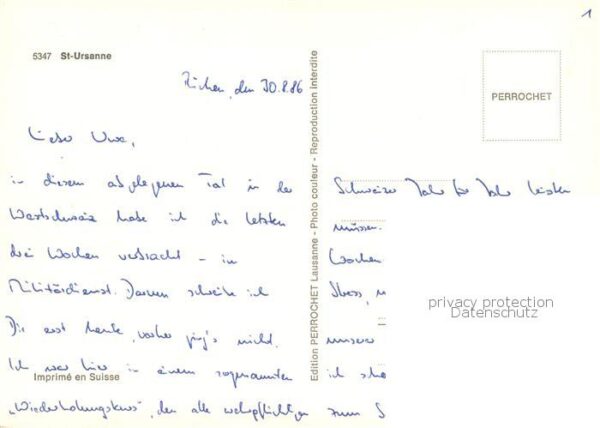 1
5347 St-Ursanne
PERROCHET
Edition PERROCHET Lausanne - Photo couleur - Reproduction Interdite
Zürich, den 30.8.86
Lieber Uwe,
in diesem abgelegenen Tal in der
Westschweiz habe ich die letzten
drei Wochen verbracht - im
Militärdienst. Darum schreibe ich
Dir erst heute, vorher ging's nicht.
Ich war hier in einem sogenannten
Imprimé en Suisse
"Wiederholungskurs", den alle wehrpflichtigen
Schweizer Jahr für Jahr leisten
müssen.
Wochen
Stress,
unserer
ich
zum S
privacy protection
Datenschutz